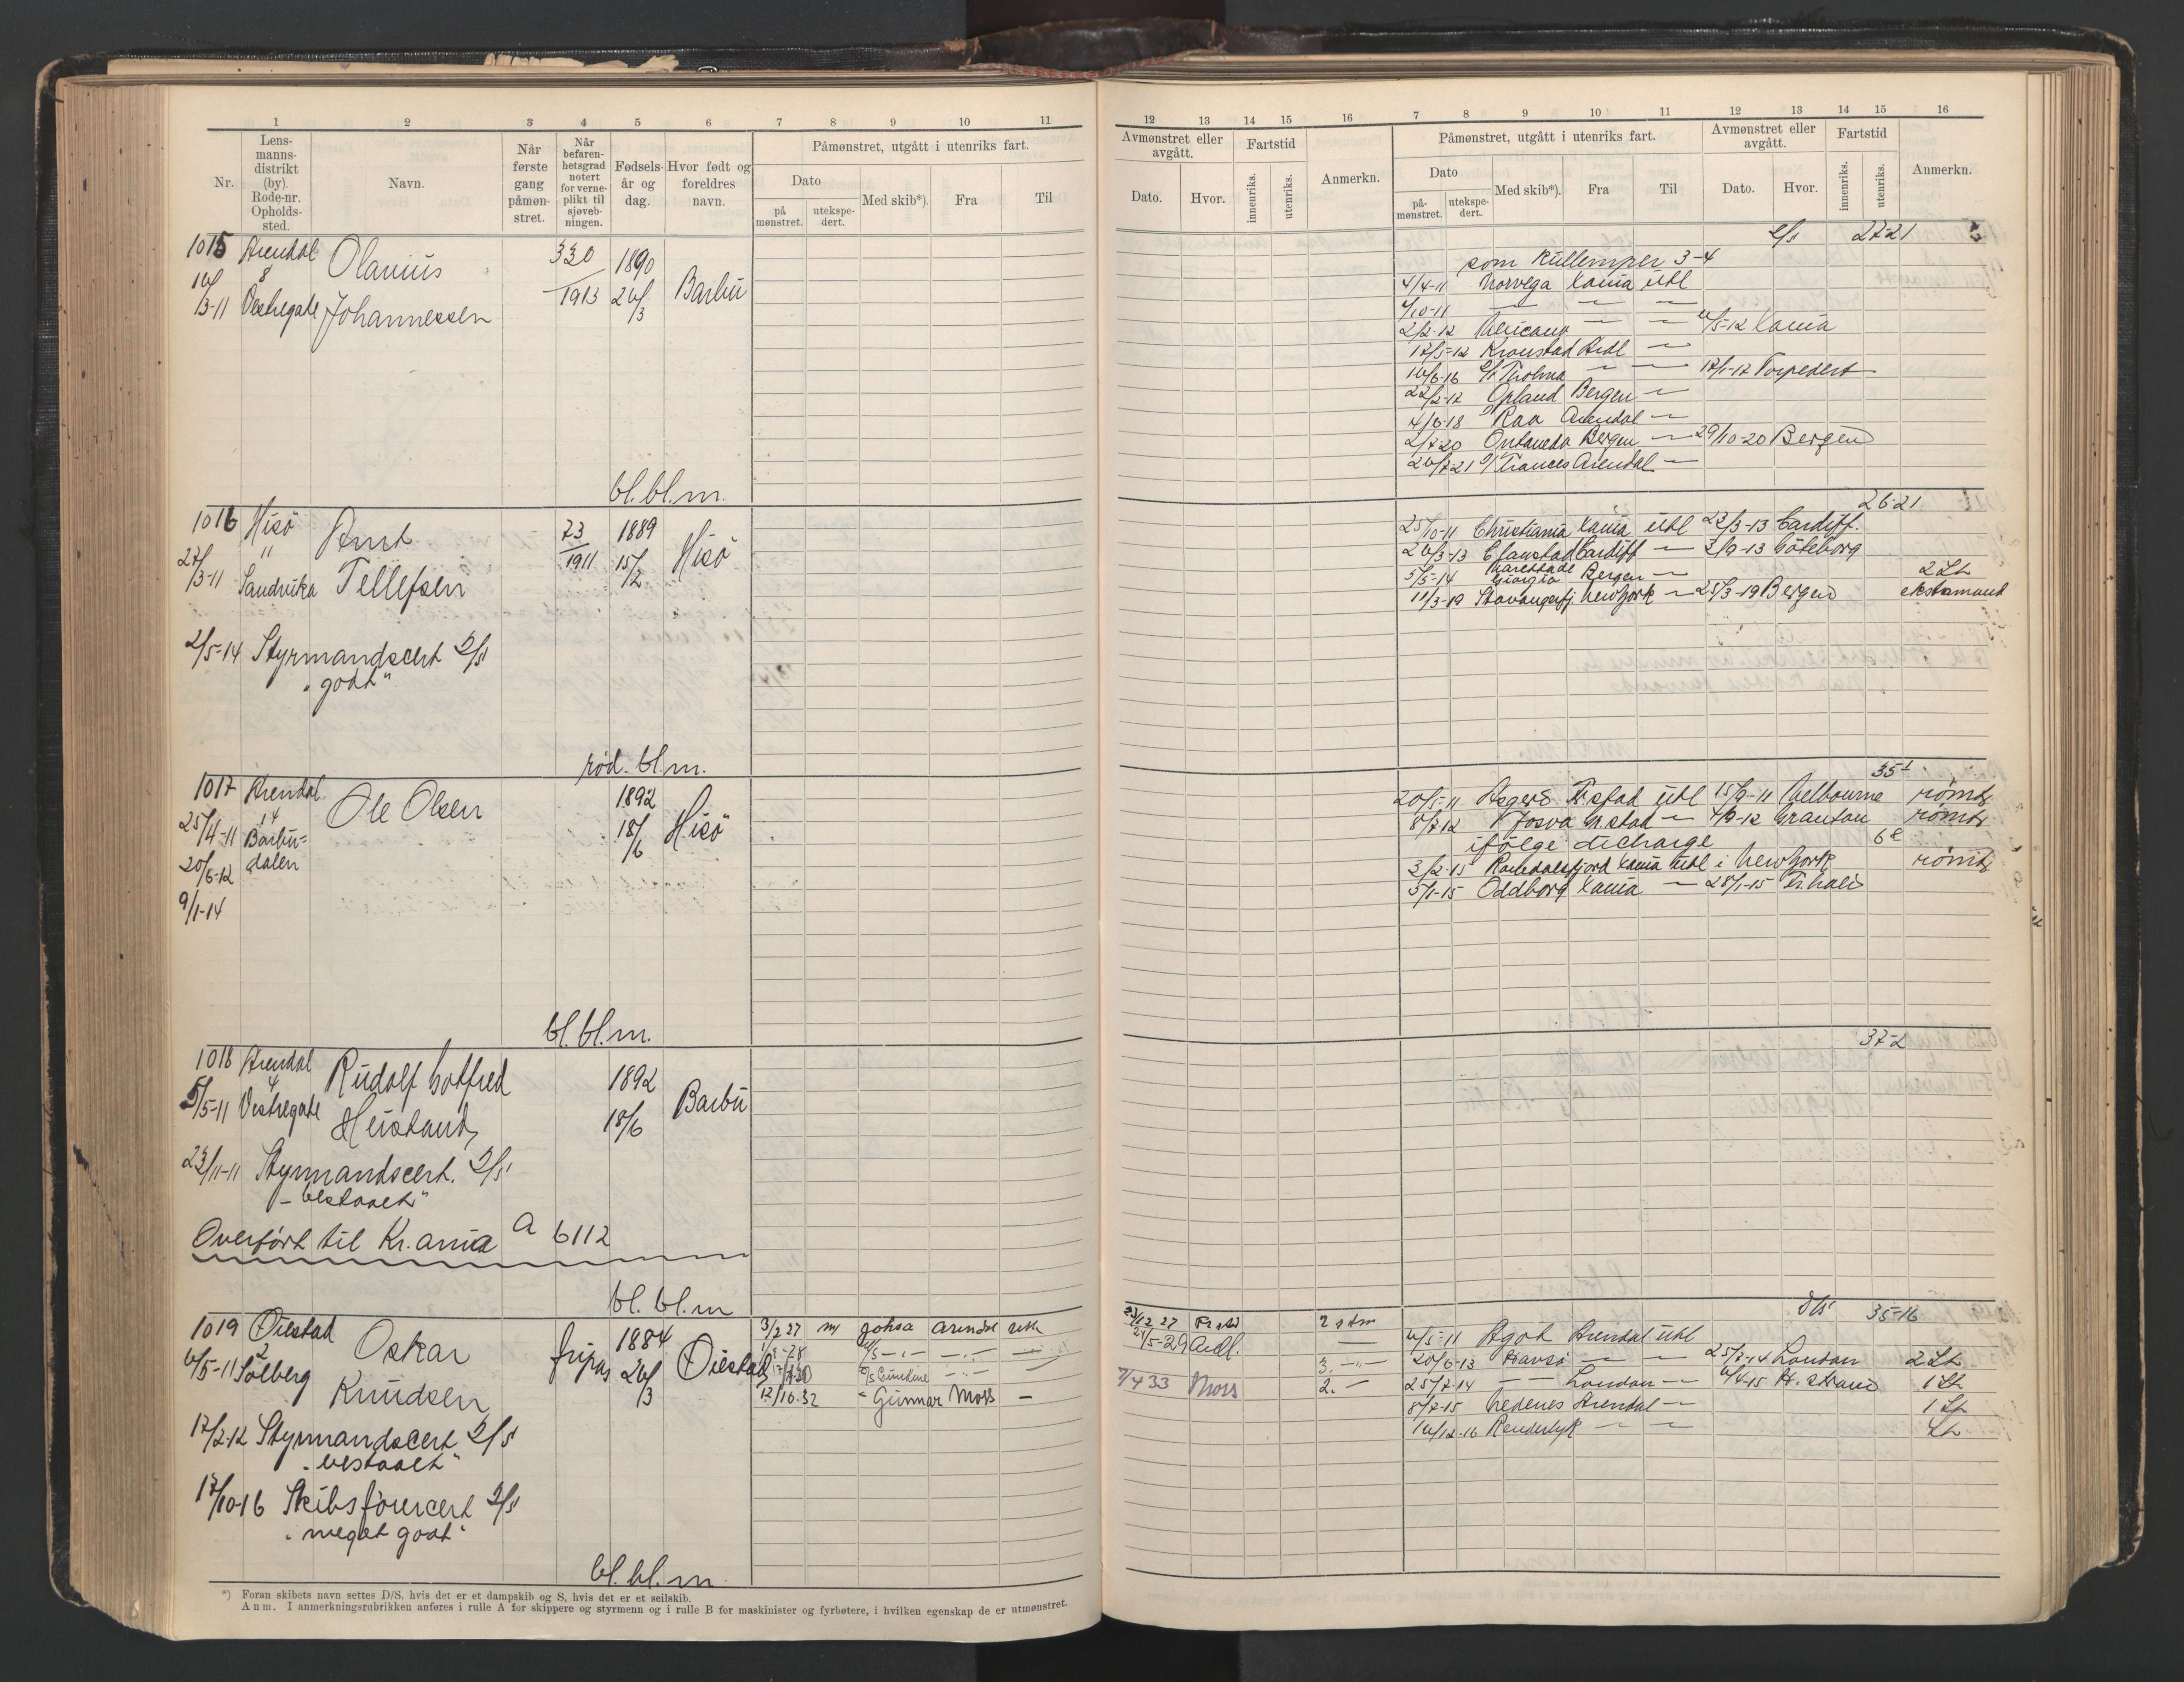 1 2 3 4 5 6 7 8 9 10 11
Nr.
Lens-
manns-
distrikt
(by).
Rode-nr.
Opholds-
sted.
Navn.
Når
første
gang
påmøn-
stret.
Når
befaren-
hetsgrad
notert
for verne-
plikt til
sjøveb-
ningen.
Fødsels-
år og
dag.
Hvor født og
foreldres
navn.
Påmønstret, utgått i utenriks fart.
Dato
på
mønstret.
utekspe-
dert.
Med skib*).
Fra
Til
1015 Arendal Olanius 330 1890
8
3-11 Vestregate Johannessen 1913 26/3 Barbu
bl. bl. m.
1016 Hisö Arnt 73 1889
27/3-11 Sandvika Tellefsen 1911 15/2 Hisö
2/5-14 Styrmandscert 2/51
"godt"
rød. bl. m.
1017 Arendal Ole Olsen 1892
25/4-11 14 Barbu- 18/6 Hisö
20/6-12 dalen
9/1-14
bl. bl. m.
1018 Arendal Rudolf Gotfred 1892
5/5-11 4 Vestregate 18/6 Barbu
23/11-11 Styrmandscert.
"bestaaet"
Overført til Kr.ania A 6112
bl. bl. m
1019 Öiestad Oskar 1884 3/2 27 m/ Johsa Arendal utk
6/5-11 2 Sölberg Knudsen 26/3 Öiestad
12/10.32 " Gunnar Mors —
17/2-12 Styrmandscert
"bestaaet"
17/10-16 Skibsförercert
"meget godt"
bl. bl. m.
*) Foran skibets navn settes D/S, hvis det er et dampskib og S, hvis det er et seilskib.
Anm. I anmerkningsrubrikken anføres i rulle A for skippere og styrmenn og i rulle B for maskinister og fyrbøtere, i hvilken egenskap de er utmønstret.
12 13 14 15 16 7 8 9 10 11 12 13 14 15 16
Avmønstret eller
avgått.
Dato. Hvor.
Fartstid
innenriks.
utenriks.
Anmerkn.
Påmønstret, utgått i utenriks fart.
Dato
på-
mønstret.
utekspe-
dert.
Med skib*).
Fra
Til
Avmønstret eller
avgått.
Dato. Hvor.
Fartstid
innenriks.
utenriks.
Anmerkn.
27-21
som kullemper 3-4
4/4-11 Norvega Kania utl
/10-11 — — —
2/2-12 — — /5-12 Kania
17/5-12 Kronstad Ardl —
16/6-16 Tholma — — 17/1-17
22/2-17 Opland Bergen —
4/6-18 Raa Arendal —
2/7-20 Bergen — 29/10-20 Bergen
26/7-21 Frances Arendal —
26-21
25/10-11 Christiania Kania utl 22/3-13 Cardiff.
26/3-13 Cardiff — 2/9-13 Göteborg
5/5-14 Bergen — 2 St
11/3-19 Stavangerfj. NewYork — 25/3-19 Bergen ekstramand
35-1
20/5-11 utl 15/9-11 Melbourne römte
8/7-12 Josva — Grantön römte
ifölge dicharge
3/2-15 Kania utl i NewYork römte
5/1-15 Oddborg Kania — 28/1-15
37-2
35-16
27/12 27 2 stm 6/5-11 Agot Arendal utl
21/5-29 Ardl. — 20/6-13 — — 25/7-14 London 2 St
7/4 33 Mors 2. — 25/7-14 — London — 1 St
8/7-15 Nedenes Arendal — 1 St
16/12-16 — — St